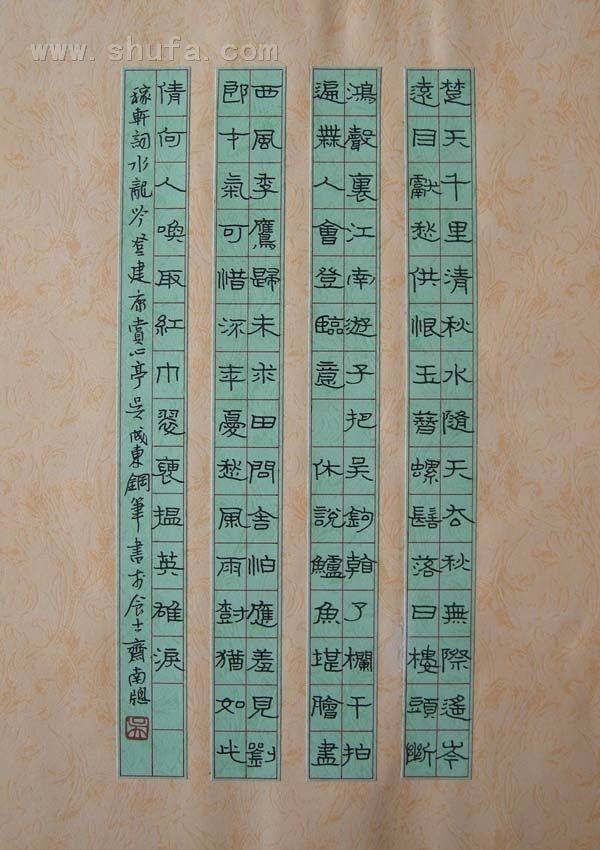 www.shufa.com
楚天千里清秋水隨天去秋無際遙岑
遠目獻愁供恨玉簪螺髻落日樓頭斷
鴻聲裏江南遊子把吳鉤看了欄干拍
遍無人會登臨意 休說鱸魚堪膾盡
西風季鷹歸未求田問舍怕應羞見劉
郎才氣可惜流年憂愁風雨樹猶如此
倩何人喚取紅巾翠褎搵英雄淚
稼軒詞水龍吟登建康賞心亭吳成東鋼筆書於士齋南牕
吳